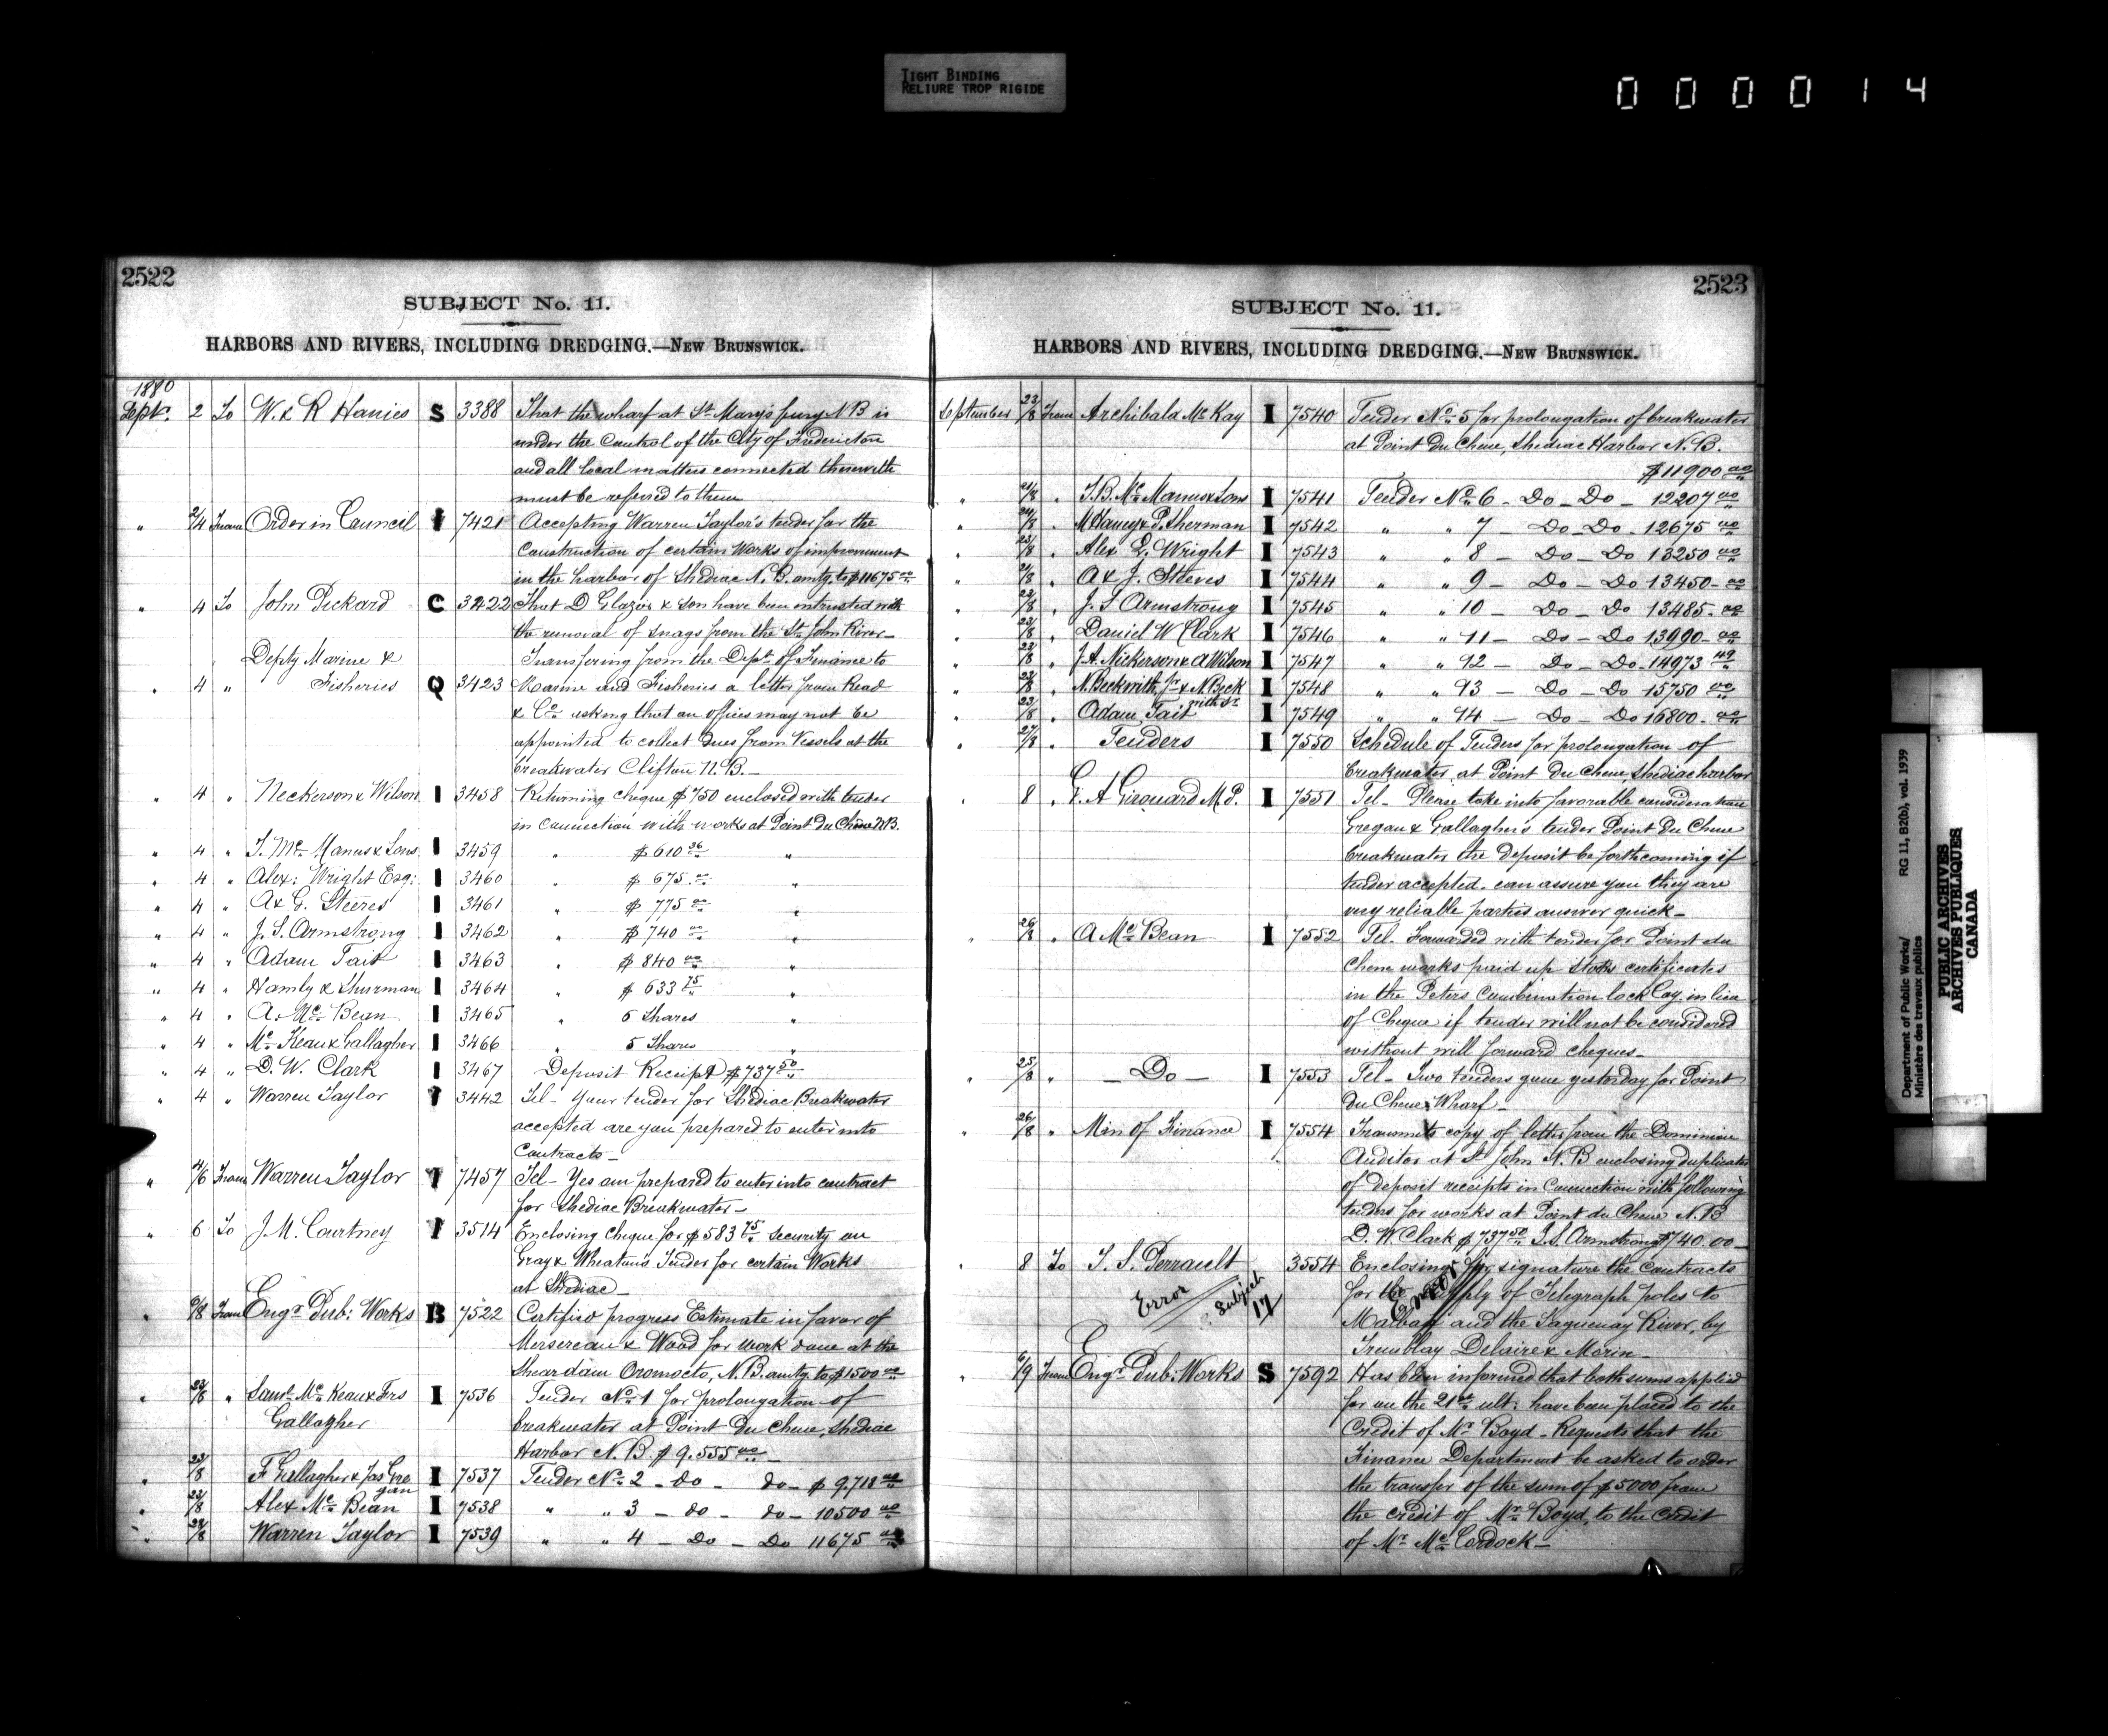 TIGHT BINDING
RELIURE TROP RIGIDE
000014
2522
SUBJECT No. 11.
HARBORS AND RIVERS, INCLUDING DREDGING.—NEW BRUNSWICK.
1880
Sept. 2 To W. & R S 3388 That the wharf at St Mary's ferry N B is
under the Control of the City of Fredericton
and all local matters connected therewith
must be referred to them
" 2/4 From Order in Council I 7421 Accepting Warren Taylor's tender for the
Construction of certain Works of improvement
in the harbor of Shediac N. B. amtg. to $11675 00
" 4 To John Pickard C 3422 That D Glazier & Son have been intrusted with
the removal of snags from the St John River_
Depty Marine & Transfering from the Dept of Finance to
" 4 " Fisheries Q 3423 Marine and Fisheries a letter from Read
& Co asking that an officer may not be
appointed to collect dues from Vessels at the
breakwater Clifton N. B._
" 4 " Neckerson & Wilson I 3458 Returning cheque $750 enclosed with tender
in connection with works at Point Du Chêne NB.
" 4 " Mc Manus & Sons I 3459 " $610 36 "
" 4 " Alex: Wright Esq: I 3460 " $675 00 "
" 4 " A & G. Steeres I 3461 " $775 00 "
" 4 " J. S. Armstrong I 3462 " $740 00 "
" 4 " Adam Tait I 3463 " $840 00 "
" 4 " & Shurman I 3464 " $633 75 "
" 4 " A. Mc Bean I 3465 " 6 Shares "
" 4 " Mc Keau & Gallagher I 3466 " 5 Shares "
" 4 " D. W. Clark I 3467 Deposit Receipt $737 50
" 4 " Warren Taylor I 3442 Tel- Your tender for Shediac Breakwater
accepted are you prepared to enter into
Contracts_
" 4/6 From Warren Taylor I 7457 Tel- Yes am prepared to enter into contract
for Shediac Breakwater_
" 6 To J. M. Courtney I 3514 Enclosing cheque for $583 75 security on
Gray & Wheaton's Tender for certain Works
at Shediac_
" 6/8 From Engr Pub: Works B 7522 Certified progress Estimate in favor of
Mersereau & Wood for work done at the
Shear dam Oromocto, N. B. amtg. to $1500 00
" 23/8 " Saml Mc Keau & Frs I 7536 Tender No 1 for prolongation of
Gallagher breakwater at Point Du Chene, Shediac
Harbor N. B. $9.555 00
" 23/8 F Gallagher & Jas Gre I 7537 Tender No 2 - do - do - $9,718 00
gan
" 23/8 Alex Mc Bean I 7538 " " 3 - do - do - 10500 00
" 23/8 Warren Taylor I 7539 " " 4 - Do - Do 11675 00
2523
SUBJECT No. 11.
HARBORS AND RIVERS, INCLUDING DREDGING.—NEW BRUNSWICK.
September 23/8 From Archibald Mc Kay I 7540 Tender No 5 for prolongation of breakwater
at Point Du Chene, Shediac Harbor N. B.
$11900 00
" 21/8 " Mc Manus & Sons I 7541 Tender No 6 - Do - Do - 12207 00
" 24/8 " & P. Sherman I 7542 " " 7 Do - Do - 12675 00
" 23/8 " Alex Wright I 7543 " " 8 - Do - Do 13250 00
" 21/8 " A & J. Steeves I 7544 " " 9 - Do - Do 13450 - 00
" 23/8 " J. S Armstrong I 7545 " " 10 - Do - Do 13485 - 00
" 23/8 " Daniel W Clark I 7546 " " 11 - Do - Do 13990 - 00
" 23/8 " J. A. Nickerson & A Wilson I 7547 " " 12 - Do - Do - 14973 49
" 23/8 " N. Beckwith, jr & N. Beck I 7548 " " 13 - Do - Do 15750 00
with Sr
" 23/8 " Adam Tait I 7549 " " 14 - Do - Do 16800 - 00
" 27/8 " Tenders I 7550 Schedule of Tenders for prolongation of
breakwater at Point Du Chene, Shediac harbor
" 8 " G. A Girouard M P. I 7551 Tel- Please take into favorable consideration
Gregan & Gallagher's tender Point Du Chene
breakwater the deposit be forthcoming if
tender accepted. can assure you they are
very reliable parties answer quick_
" 26/8 " A Mc Bean I 7552 Tel. Forwarded with tender for Point du
Chene works paid up stocks certificates
in the Peters Combination lock Coy in lieu
of Cheque if tender will not be considered
without will forward cheques_
" 25/8 " _ Do _ I 7553 Tel- Two tenders gone yesterday for Point
Du Chene Wharf_
" 26/8 " Min of Finance I 7554 Transmits copy of letter from the Dominion
Auditor at St John N. B enclosing duplicates
of deposit receipts in connection with following
tenders for works at Point du Chene N. B
D. W. Clark $737 50 J. S. Armstrong $740.00_
" 8 To J. S. Perrault 3554 Enclosing for signature the contracts
Error Subject 17 for the supply of Telegraph poles to
Error
Malbay and the Saguenay River, by
Tremblay Delaire & Morin_
" 6/9 From Engr Pub: Works S 7592 Has been informed that both sums applied
for on the 21st ult: have been placed to the
Credit of Mr Boyd_ Requests that the
Finance Department be asked to order
the transfer of the sum of $5000 from
the credit of Mr Boyd, to the credit
of Mr Mc Cordock_
Department of Public Works/ RG 11, B2(b), vol. 1939
Ministère des travaux publics
PUBLIC ARCHIVES
ARCHIVES PUBLIQUES
CANADA